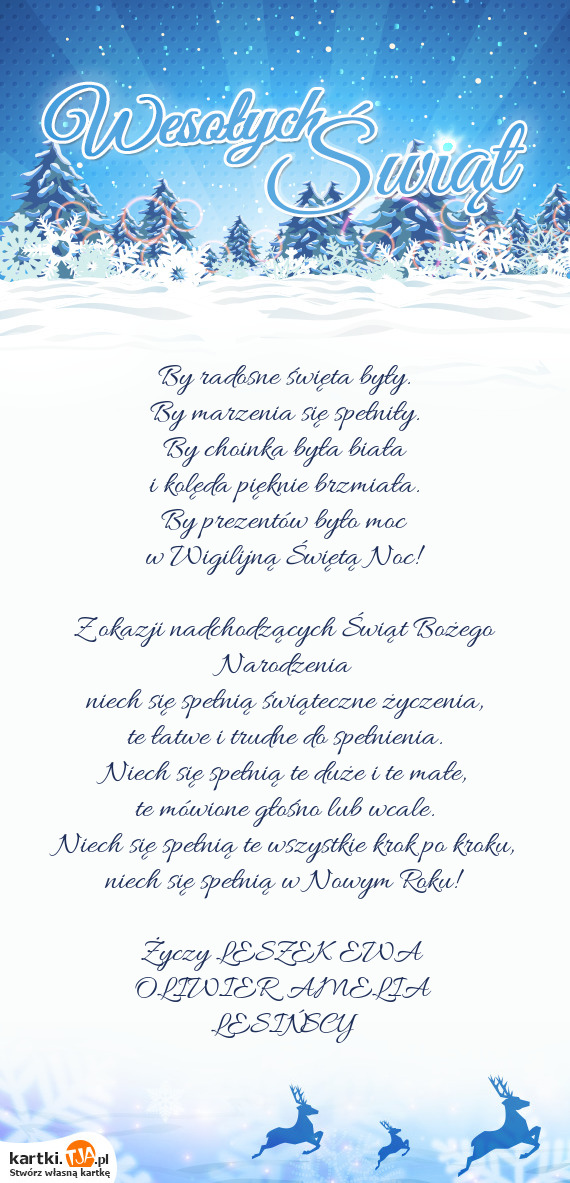 Wesołych Świąt
By radosne święta były.
By marzenia się spełniły.
By choinka była biała
i kolęda pięknie brzmiała.
By prezentów było moc
w Wigilijną Świętą Noc!
Z okazji nadchodzących Świąt Bożego
Narodzenia
niech się spełnią świąteczne życzenia,
te łatwe i trudne do spełnienia.
Niech się spełnią te duże i te małe,
te mówione głośno lub wcale.
Niech się spełnią te wszystkie krok po kroku,
niech się spełnią w Nowym Roku!
Życzy LESZEK EWA
OLIWIER AMELIA
LESIŃSCY
kartki.TJA.pl
Stwórz własną kartkę